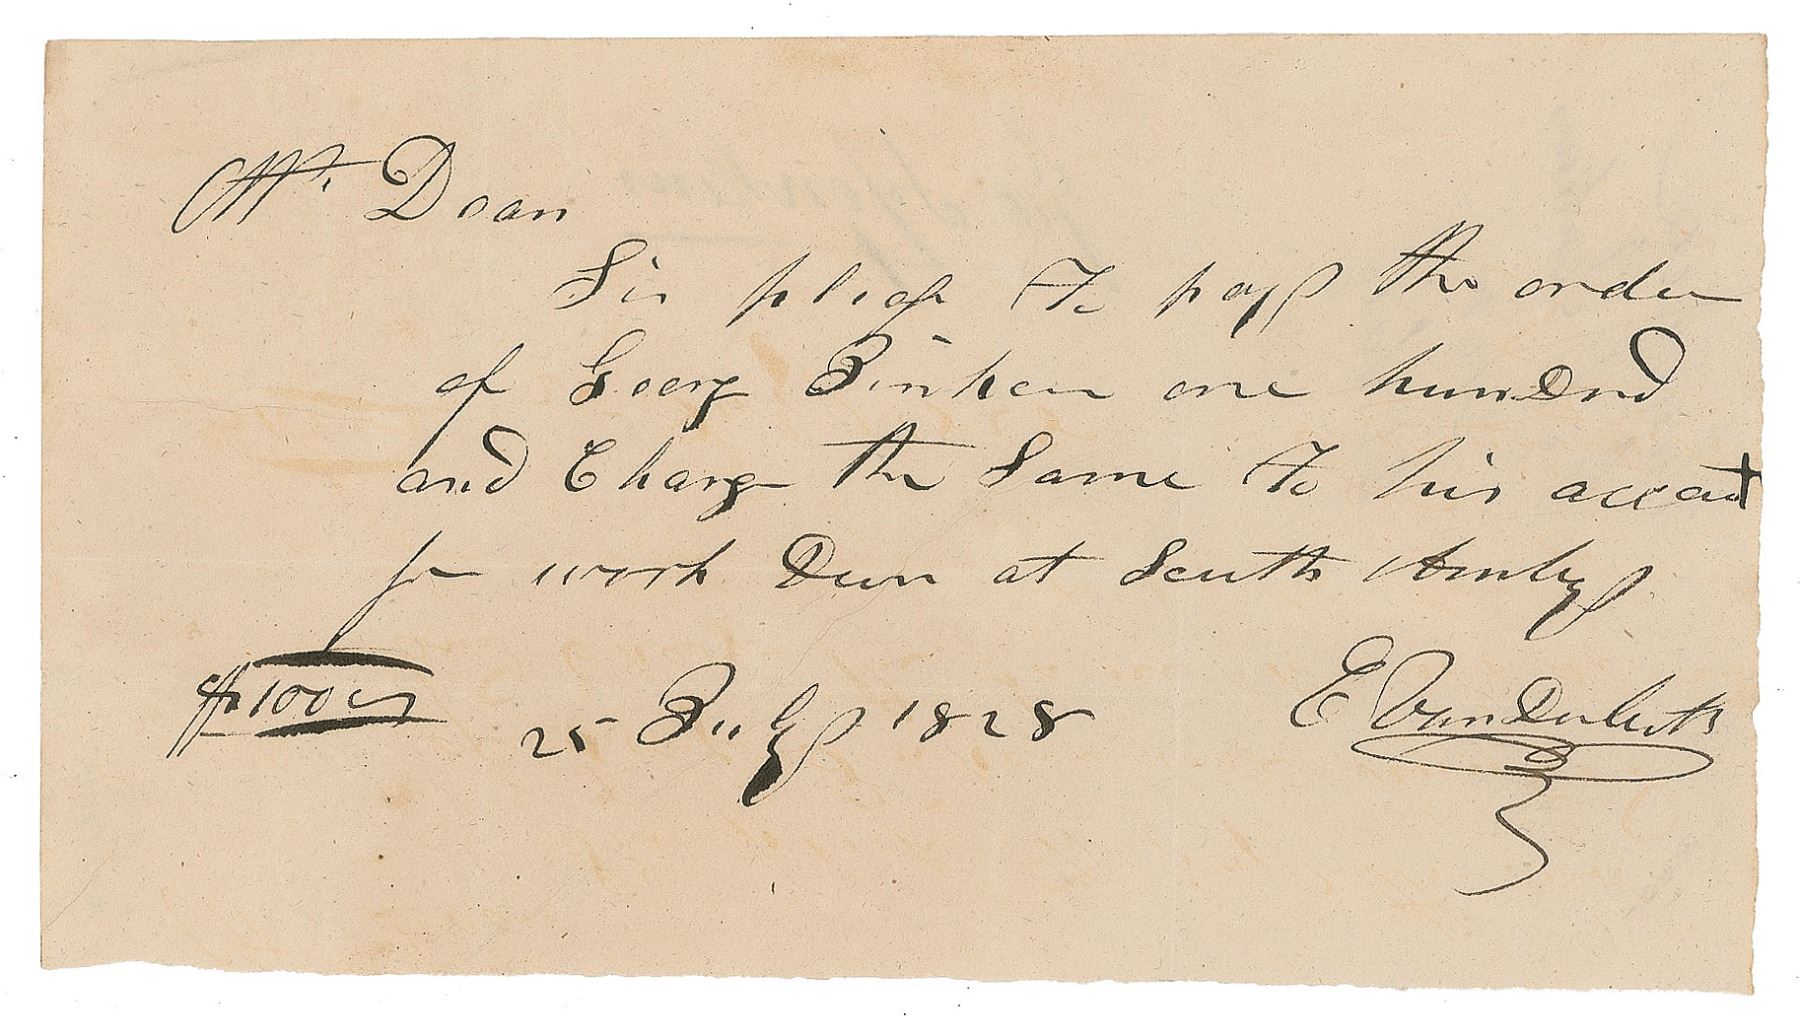 Mr. Dean
Sir pleas to pay the order
of Georg Jinken one hundred
and Charge the Same to his accont
for work Dun at South Amby
$100
25 July 1828 E VanDerbilt